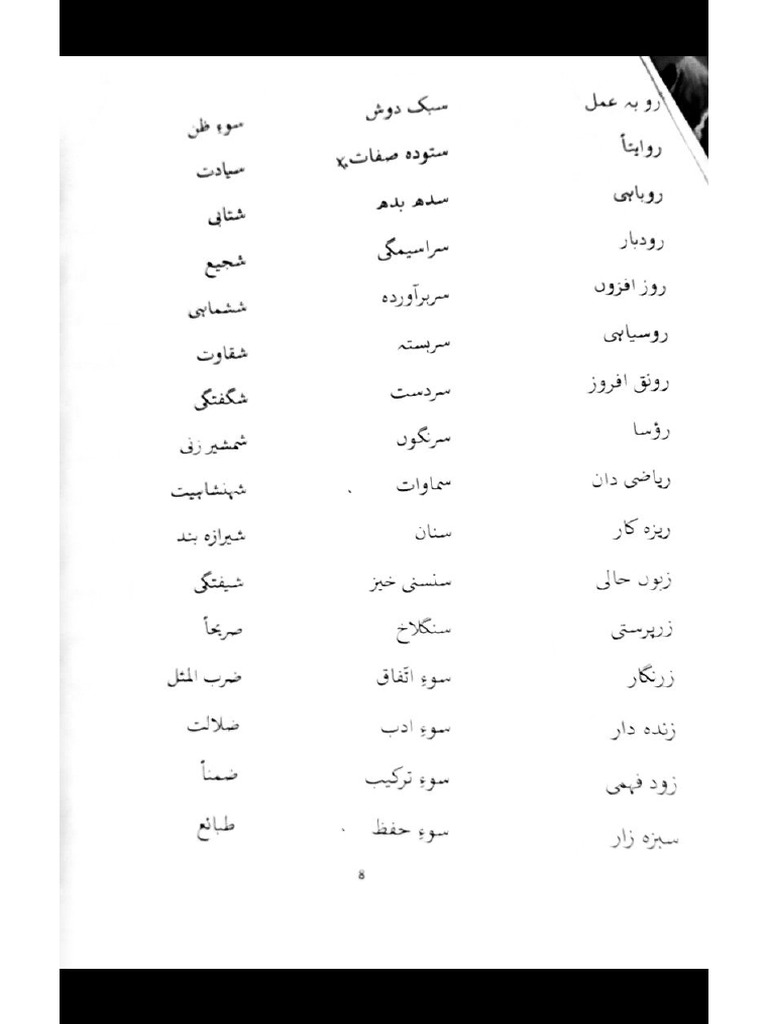 رو بہ عمل
روایتاً
روباہی
رودبار
روز افزوں
روسیاہی
رونق افروز
رؤسا
ریاضی دان
ریزہ کار
زبوں حالی
زرپرستی
زرنگار
زندہ دار
زود فہمی
سبزہ زار
سبک دوش
ستودہ صفات
سدھ بدھ
سراسیمگی
سربرآوردہ
سربستہ
سردست
سرنگوں
سماوات
سنان
سنسنی خیز
سنگلاخ
سوءِ اتّفاق
سوءِ ادب
سوءِ ترکیب
سوءِ حفظ
سوءِ ظن
سیادت
شتابی
شجیع
ششماہی
شقاوت
شگفتگی
شمشیر زنی
شہنشاہیت
شیرازہ بند
شیفتگی
صریحاً
ضرب المثل
ضلالت
ضمناً
طبائع
8